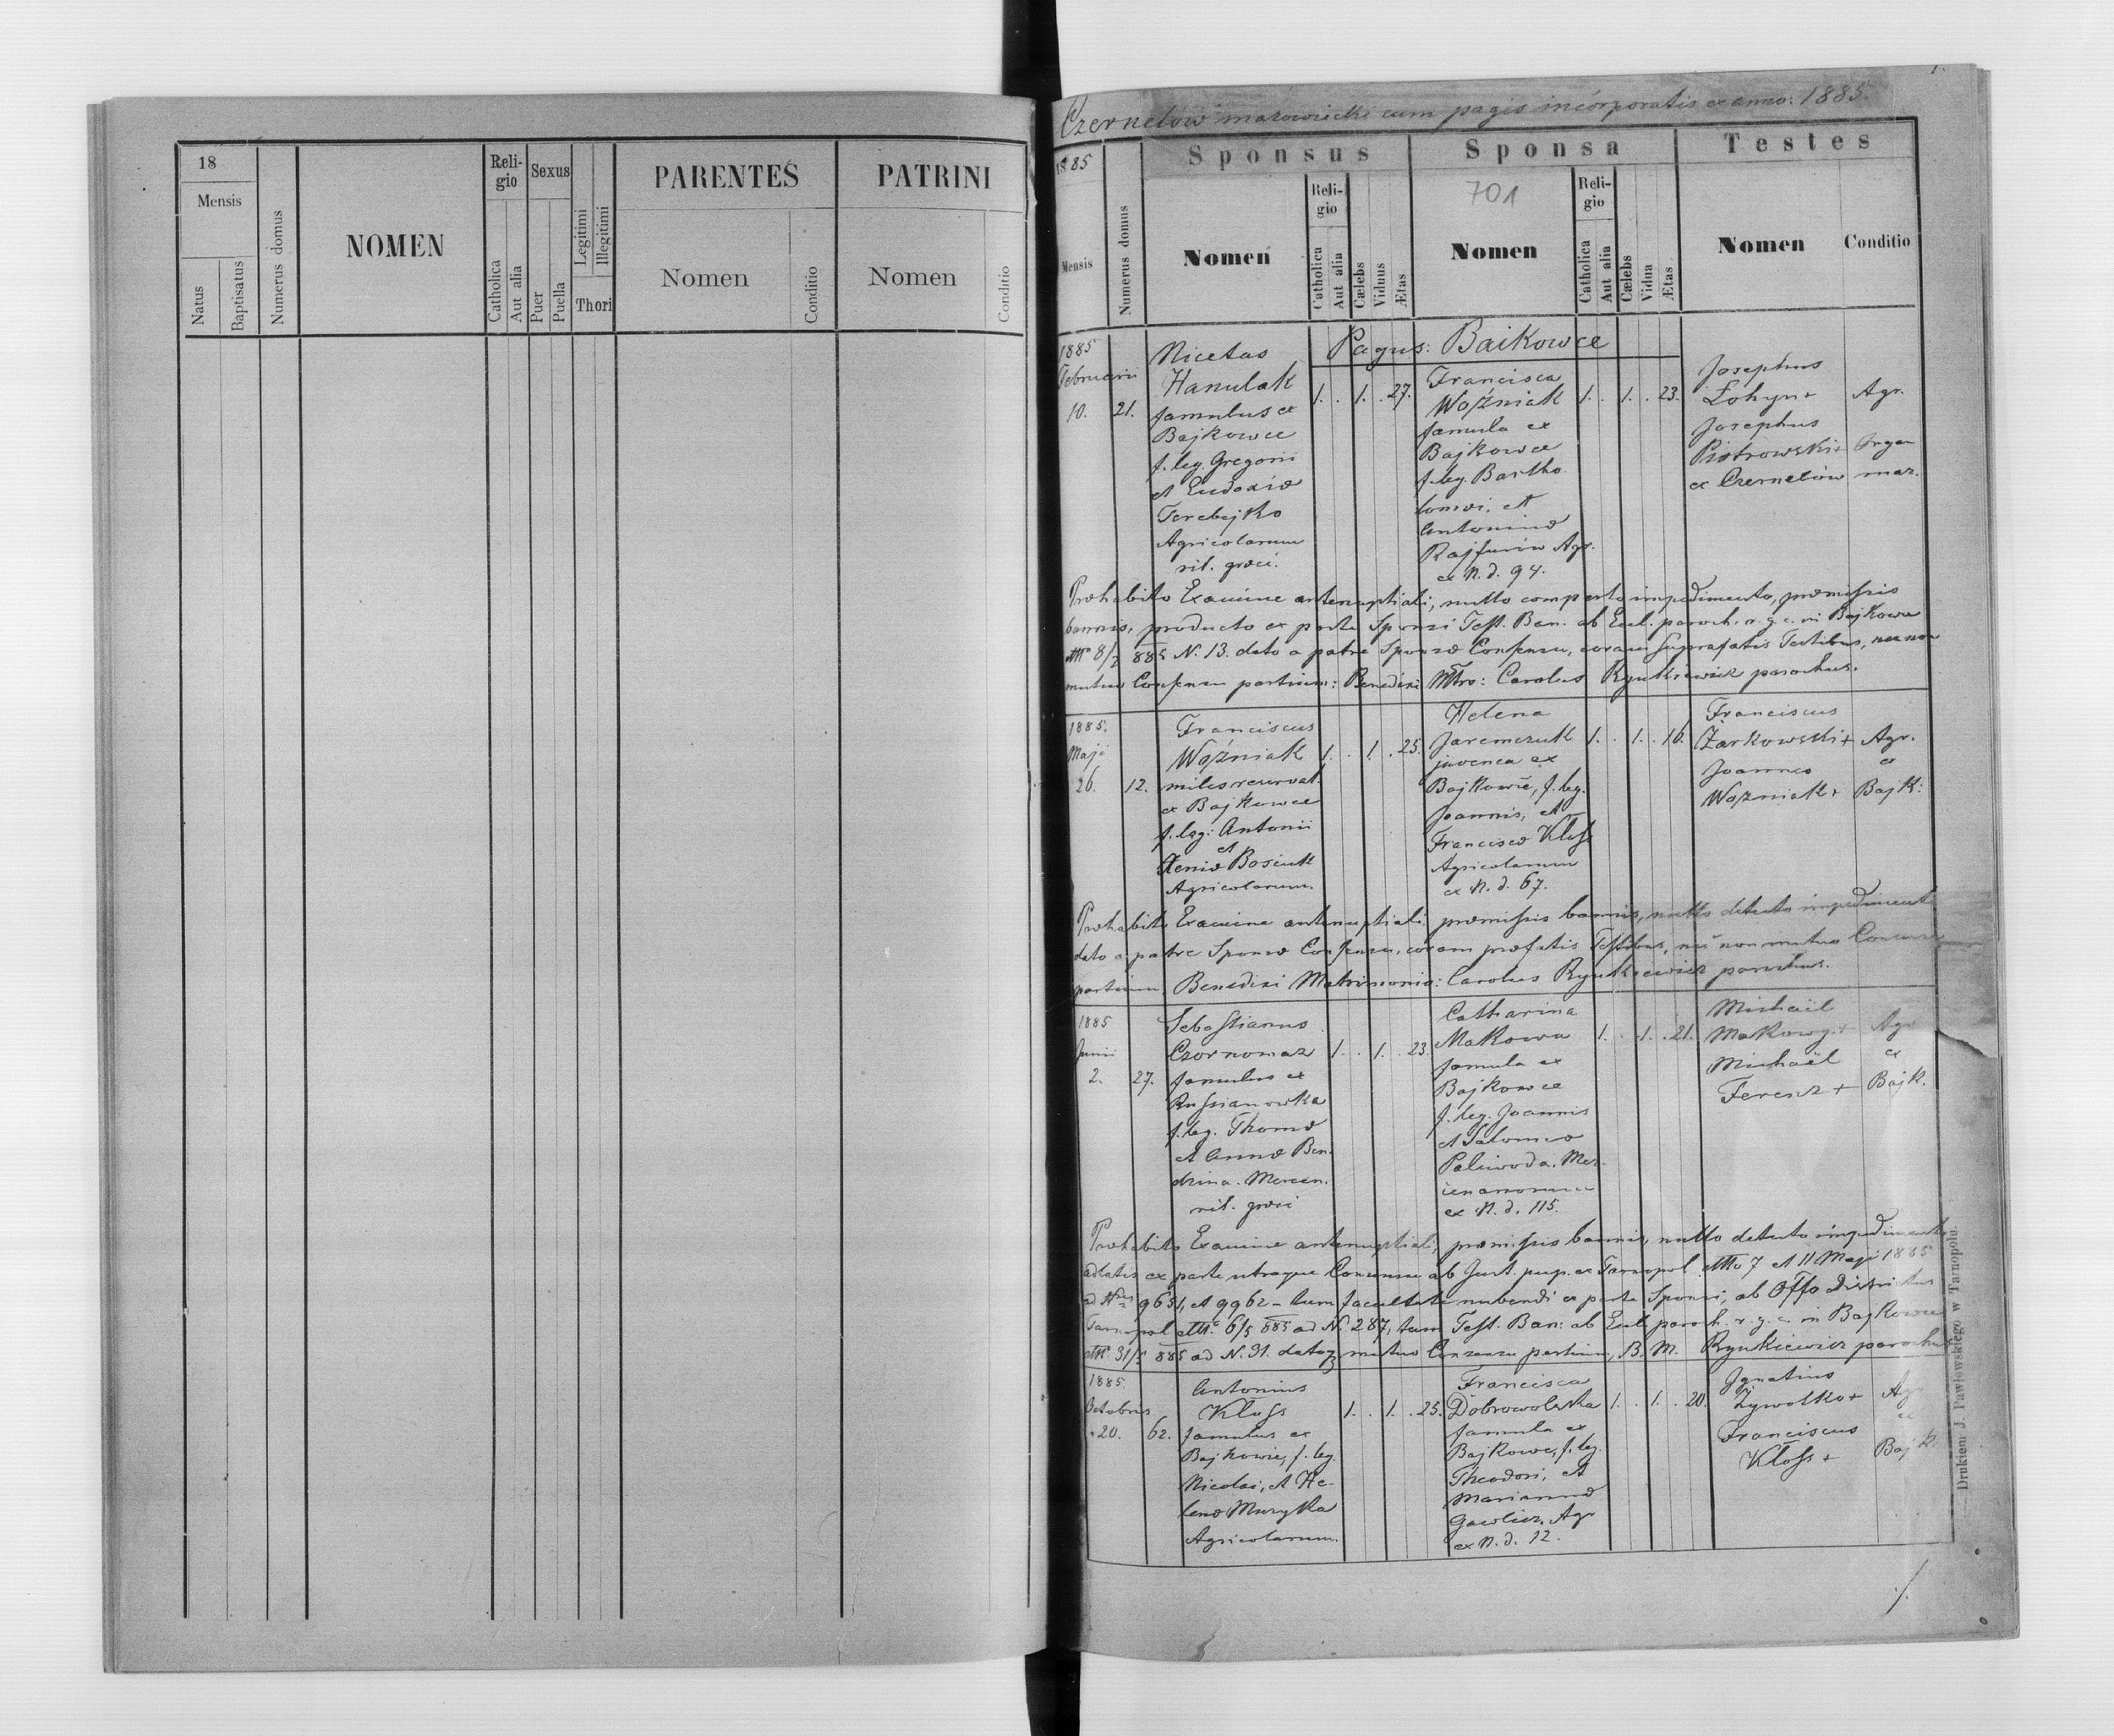 18
Mensis
Natus
Baptisatus
Numerus domus
NOMEN
Reli-
gio
Catholica
Aut alia
Sexus
Puer
Puella
Legitimi
Illegitimi
Thori
PARENTES
Nomen
Conditio
PATRINI
Nomen
Conditio
1.
Czernelów mazowiecki cum pagis incorporatis ex anno: 1885.
1885
Mensis
Numerus domus
Sponsus
Nomen
Reli-
gio
Catholica
Aut alia
Cælebs
Viduus
Ætas
Sponsa
701
Nomen
Reli-
gio
Catholica
Aut alia
Cælebs
Vidua
Ætas
Testes
Nomen
Conditio
Pagus: Baikowce
1885
Februarii
10. 21.
Nicetas
Hanulak
famulus ex
Bajkowce
f. leg. Gregorii
et Eudoxiæ
Terebejko
Agricolarum
rit. græci.
1. . 1. . 27.
Francisca
Woźniak
famula ex
Bajkowce
f. leg. Bartho
lomæi, et
Antoninæ
Agr.
ex N. d. 94.
1. . 1. . 23.
Josephus
Łohyn +
Josephus
Piotrowski +
ex Czernelów
Agr.
maz.
Præhabito Examine antenuptiali, nullo comperto impedimento, præmissis
bannis, producto ex parte Sponsi Test. Ban. ab Eccl. paroch. r. g. c. in Bajkowce
885 N. 13. dato a patre Sponsæ Consensu, coram suprafatis Testibus, nec non
mutuo Consensu partium: Benedixi Mtro: Carolus Rynkiewicz parochus.
1885.
Maji
26. 12.
Franciscus
Woźniak
miles reservat.
ex Bajkowce
f. leg: Antonii
et
Xeniæ Bosiuk
Agricolarum.
1. . 1. . 25.
Helena
Jaremczuk
juvenca ex
Bajkowce, f. leg.
Joannis, et
Franciscæ Kloss
Agricolarum
ex N. d. 67.
1. . 1. . 16.
Franciscus
Żarkowski +
Joannes
Woźniak +
Agr.
ex
Bajk:
Præhabito Examine antenuptiali præmissis bannis, nullo detecto impedimento
dato a patre Sponsæ Consensu, coram præfatis Testibus, nec non mutuo Consensu
partium, Benedixi Matrimonio: Carolus Rynkiewicz parochus.
1885
Junii
2. 27.
Sebastianus
Czornomaz
famulus ex
Russianowka
f. leg. Thomæ
et Annæ Ben-
drina. Mercen.
rit. græci
1. . 1. . 23.
Catharina
Makowa
famula ex
Bajkowce
f. leg. Joannis
et Salomeæ
Paliwoda. Mer-
cenariorum
ex N. d. 115.
1. . 1. . 21.
Michaël
Makowy +
Michaël
Ferenz +
Agr
ex
Bajk.
Præhabito Examine antenuptiali, præmissis bannis, nullo detecto impedimento
adlatis ex parte utraque Consensu ab Jud. pup. ex Tarnopol 7 et 11 Maji 1885
9651, et 9962 – tum facultate nubendi ex parte Sponsi, ab Offo Districtus
Tarnopol 6/5 885 ad N. 287, tum Test. Ban: ab Eccl. paroch. r. g. c. in Bajkowce
31/5 885 ad N. 31. mutuo Consensu partium, B. M. Rynkiewicz parochus
1885
Octobris
20. 62.
Antonius
Kloss
famulus ex
Bajkowce, f. leg.
Nicolai, et He-
lenæ Muzyka
Agricolarum.
1. . 1. . 25.
Francisca
Dobrowolska
famula ex
Bajkowce, f. leg.
Theodori, et
Mariannæ
Gawlicz. Agr
ex N. d. 12.
1. . 1. . 20.
Ignatius
Żywotko +
Franciscus
Kloss +
Agr
ex
Bajk.
Drukiem J. Pawłowskiego w Tarnopolu.
./.